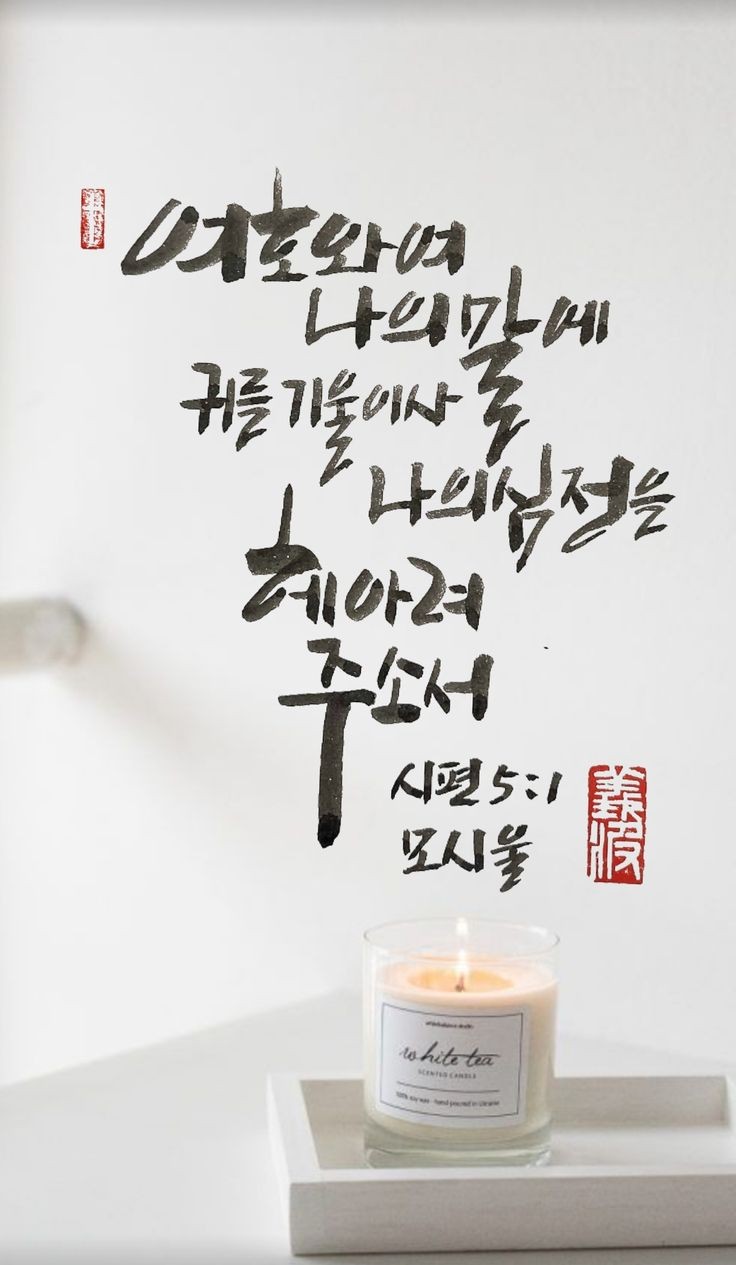 여호와여
나의 말에
귀를 기울이사
나의 심정을
헤아려
주소서
시편 5:1
모시울
white tea
SCENTED CANDLE
100% soy wax - hand poured in Ukraine